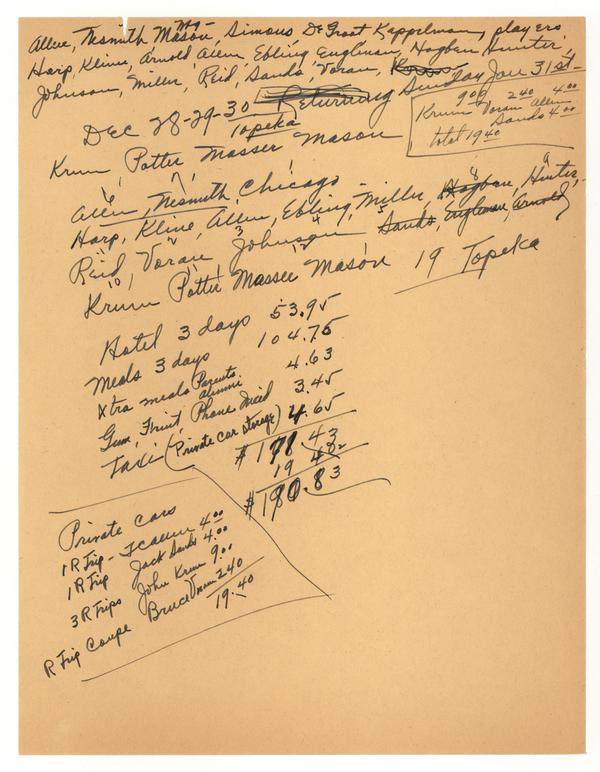 Mgr-
Allen, Nesmith Mason, Simons DeGroot Kappelman, players
Harp, Kline, Arnold Allen, Ebling Engleman, Hogben Hunter,
Johnson, Miller, Reid, Sands, Voran,
Returning Sunday Jan 31st-
Dec 28-29-30
Topeka
900 240 4.00
Krum Voran Allen
Sands 4.00
total 19.40
Krum Potter Masser Mason
6 7
Allen, Nesmith Chicago 8 9
Harp, Kline, Allen, Ebling, Miller, Hogben, Hunter,
11 2 3 4 5
Reid, Voran Johnson Sands, Engleman, Arnold
10 1 12
Krum Potter Masser Mason 19 Topeka
Hotel 3 days 53.95
Meals 3 days 104.75
Xtra meals Parents alumni 4.63
Gum, Fruit, Phone Maid 3.45
Taxi (Private car storage) 4.65
$171.43
19 40
$190.83
Private cars
1 R Trip - F C Allen 4.00
1 R Trip Jack Sands 4.00
3 R Trips John Krum 9.00
R Trip Coupe Bruce Voran 2.40
19.40